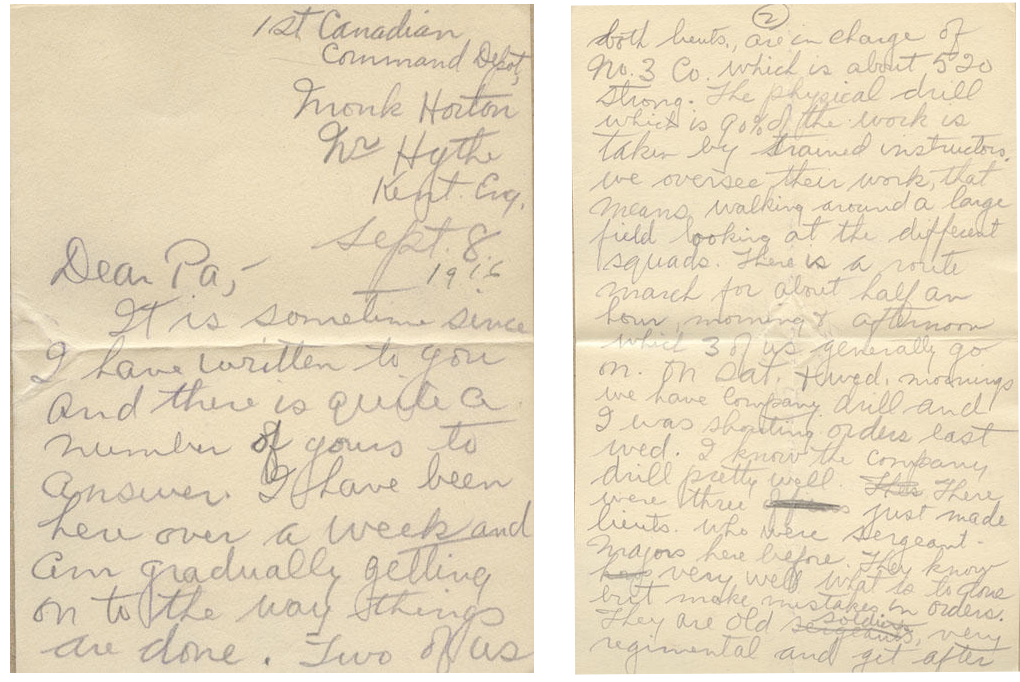 1st Canadian
Command Depot,
Monk Horton
Nr Hythe
Kent. Eng.
Sept. 8.
1916
Dear Pa,-
It is sometime since
I have written to you
and there is quite a
number of yours to
answer. I have been
here over a week and
am gradually getting
on to the way things
are done. Two of us
2
both lieuts., are in charge of
No. 3 Co. which is about 520
strong. The physical drill
which is 90% of the work is
taken by trained instructors,
we oversee their work, that
means walking around a large
field looking at the different
squads. There is a route
march for about half an
hour, morning & afternoon
which 3 of us generally go
on. On Sat. & Wed. mornings
we have company drill and
I was shouting orders last
Wed. I know the company
drill pretty well. This There
were three just made
lieuts. who were sergeant-
Majors here before. They know
very well what is to done
but make mistakes in orders.
soldiers
They are old sergeants, very
regimental and get after